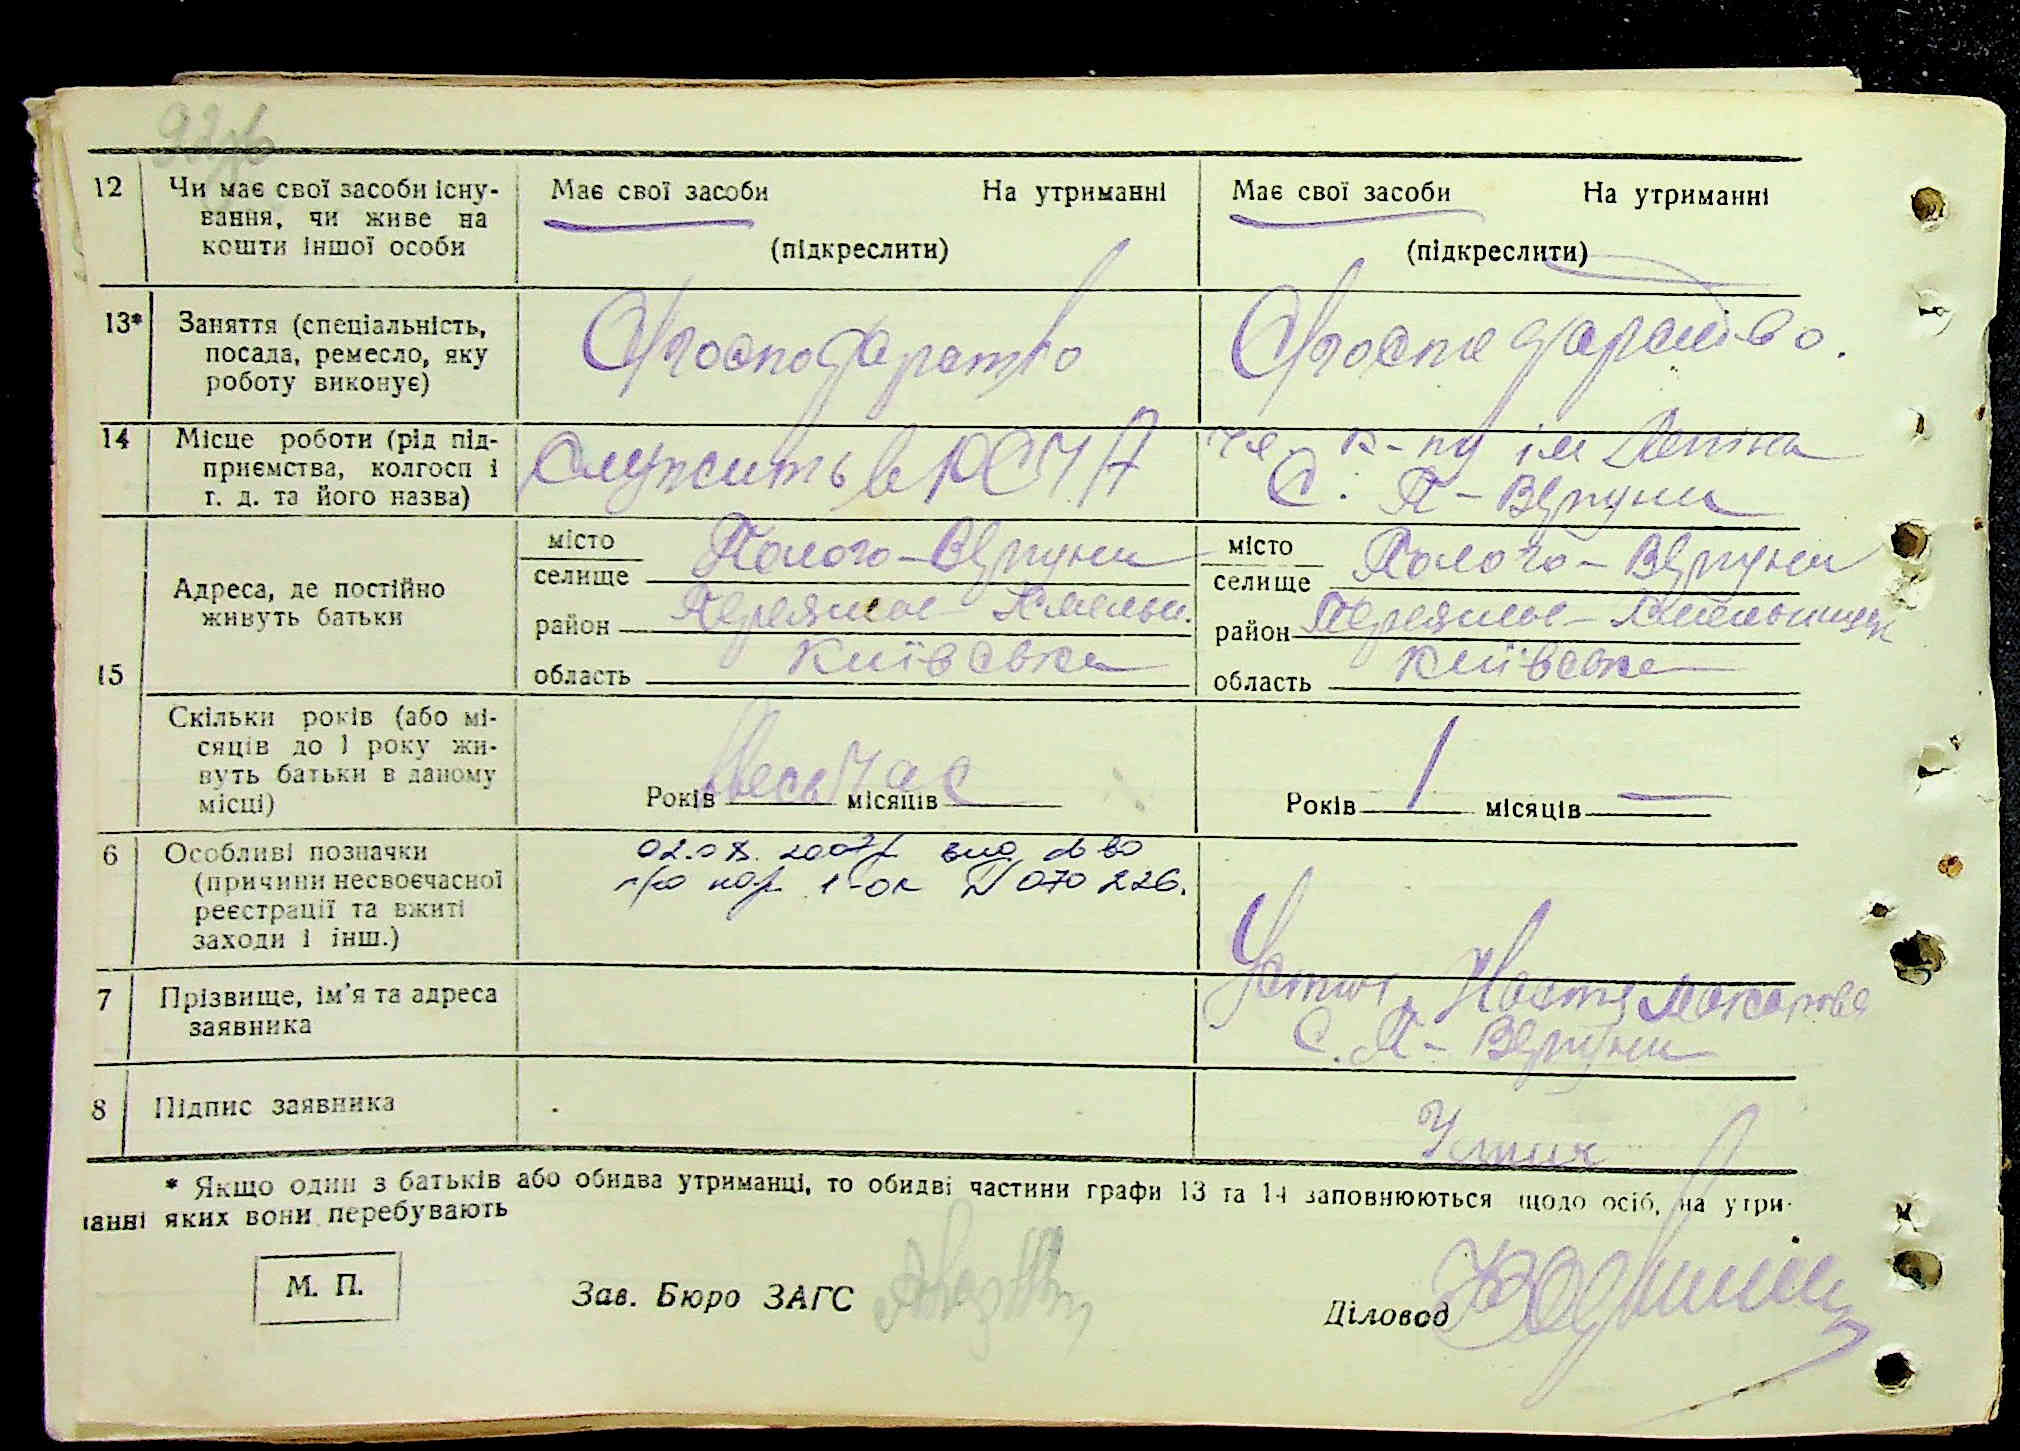 92зв
12 Чи має свої засоби існу- Має свої засоби На утриманні Має свої засоби На утриманні
вання, чи живе на
кошти іншої особи (підкреслити) (підкреслити)
13* Заняття (спеціальність,
посада, ремесло, яку
роботу виконує)
14 Місце роботи (рід під- Служить в РСЧА к-пу ім Леніна
приємства, колгосп і С. П-Вергуни
т. д. та його назва)
місто Полого-Вергуни місто Полого-Вергуни
Адреса, де постійно селище селище
живуть батьки район район
15 область Київська область Київська
Скільки років (або мі-
сяців до 1 року жи-
вуть батьки в даному Весь час 1
місці) Років місяців Років місяців —
6 Особливі позначки 02.08.2007р вид св во
(причини несвоєчасної про нар 1-ок № 070226.
реєстрації та вжиті
заходи і інш.)
7 Прізвище, ім'я та адреса Устич Настя
заявника С. П-Вергуни
8 Підпис заявника Устич
* Якщо один з батьків або обидва утриманці, то обидві частини графи 13 та 14 заповнюються щодо осіб, на утри-
анні яких вони перебувають
М. П. Зав. Бюро ЗАГС Діловод